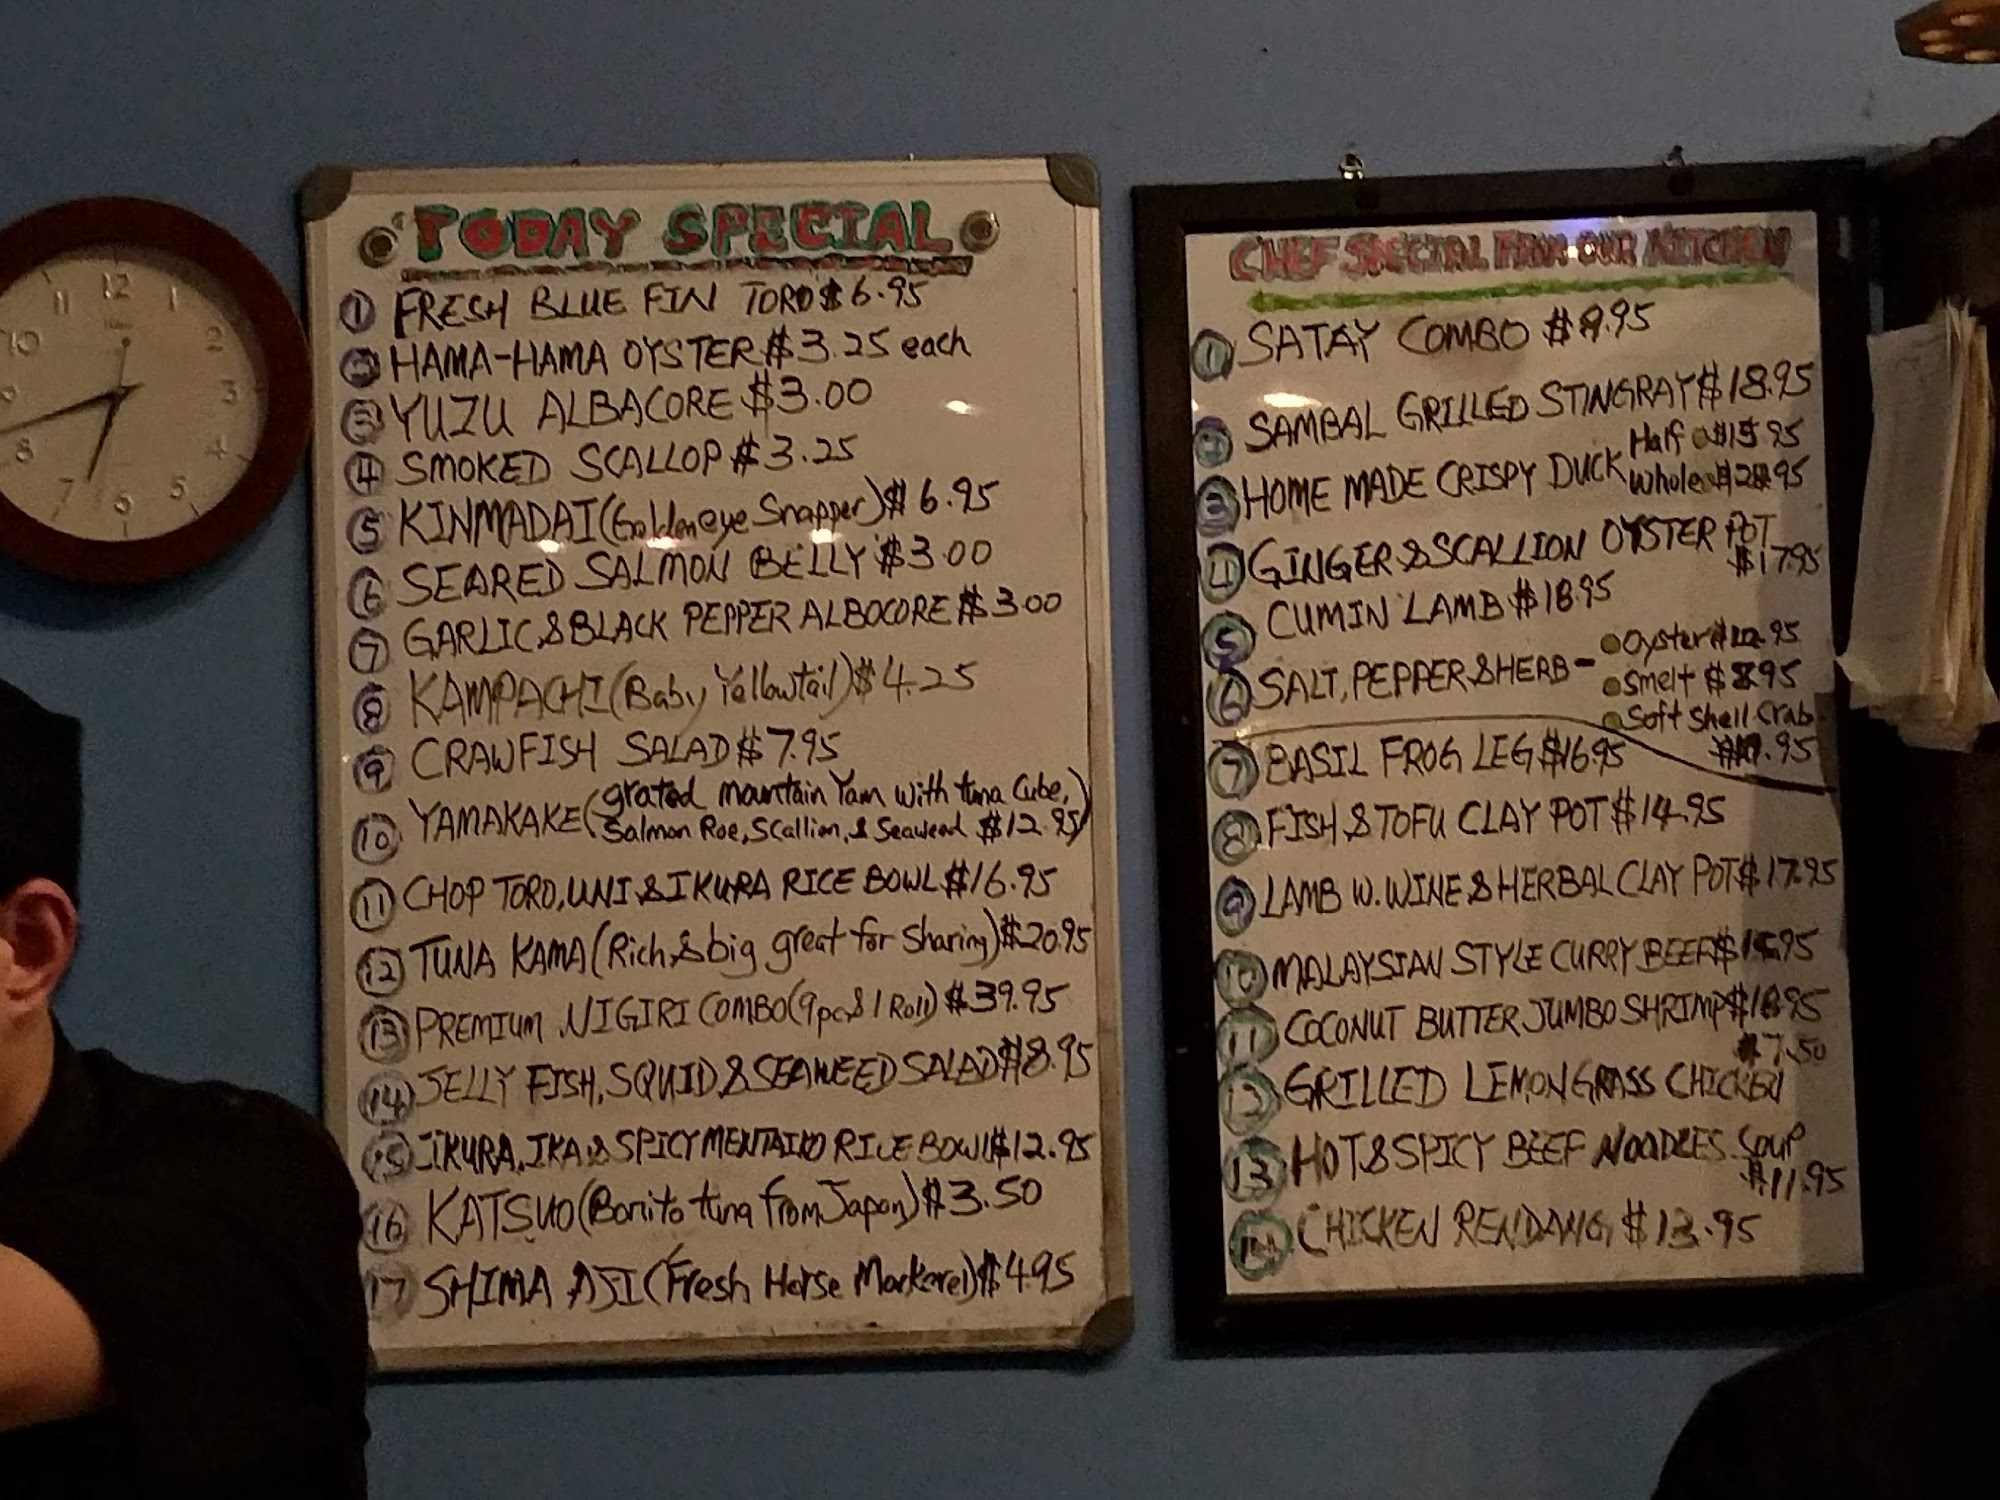 12
11
1
10
2
9
3
8
4
7
5
6
TODAY SPECIAL
1 FRESH BLUE FIN TORO $6.95
2 HAMA-HAMA OYSTER $3.25 each
3 YUZU ALBACORE $3.00
4 SMOKED SCALLOP $3.25
5 KINMADAI (Goldeneye Snapper) $6.95
6 SEARED SALMON BELLY $3.00
7 GARLIC & BLACK PEPPER ALBOCORE $3.00
8 KAMPACHI (Baby Yellowtail) $4.25
9 CRAWFISH SALAD $7.95
10 YAMAKAKE (grated mountain Yam with tuna Cube,
Salmon Roe, Scallion, & Seaweed $12.95)
11 CHOP TORO, UNI & IKURA RICE BOWL $16.95
12 TUNA KAMA (Rich & big great for Sharing) $20.95
13 PREMIUM NIGIRI COMBO (9pc & 1 Roll) $39.95
14 JELLY FISH, SQUID & SEAWEED SALAD $8.95
15 IKURA, IKA & SPICY MENTAIKO RICE BOWL $12.95
16 KATSUO (Bonito tuna from Japan) $3.50
17 SHIMA AJI (Fresh Horse Markerel) $4.95
CHEF SPECIAL FROM OUR KITCHEN
1 SATAY COMBO
2 SAMBAL GRILLED STINGRAY $18.95
3 HOME MADE CRISPY DUCK Half $15.95
Whole
4 GINGER & SCALLION OYSTER POT
$17.95
5 CUMIN LAMB $18.95
6 SALT, PEPPER & HERB - Oyster
Smelt
Soft Shell Crab
7 BASIL FROG LEG $16.95
8 FISH & TOFU CLAY POT $14.95
9 LAMB W. WINE & HERBAL CLAY POT $17.95
10 MALAYSIAN STYLE CURRY BEEF
11 COCONUT BUTTER JUMBO SHRIMP
$7.50
12 GRILLED LEMONGRASS CHICKEN
13 HOT & SPICY BEEF NOODLES SOUP
$11.95
14 CHICKEN RENDANG $13.95